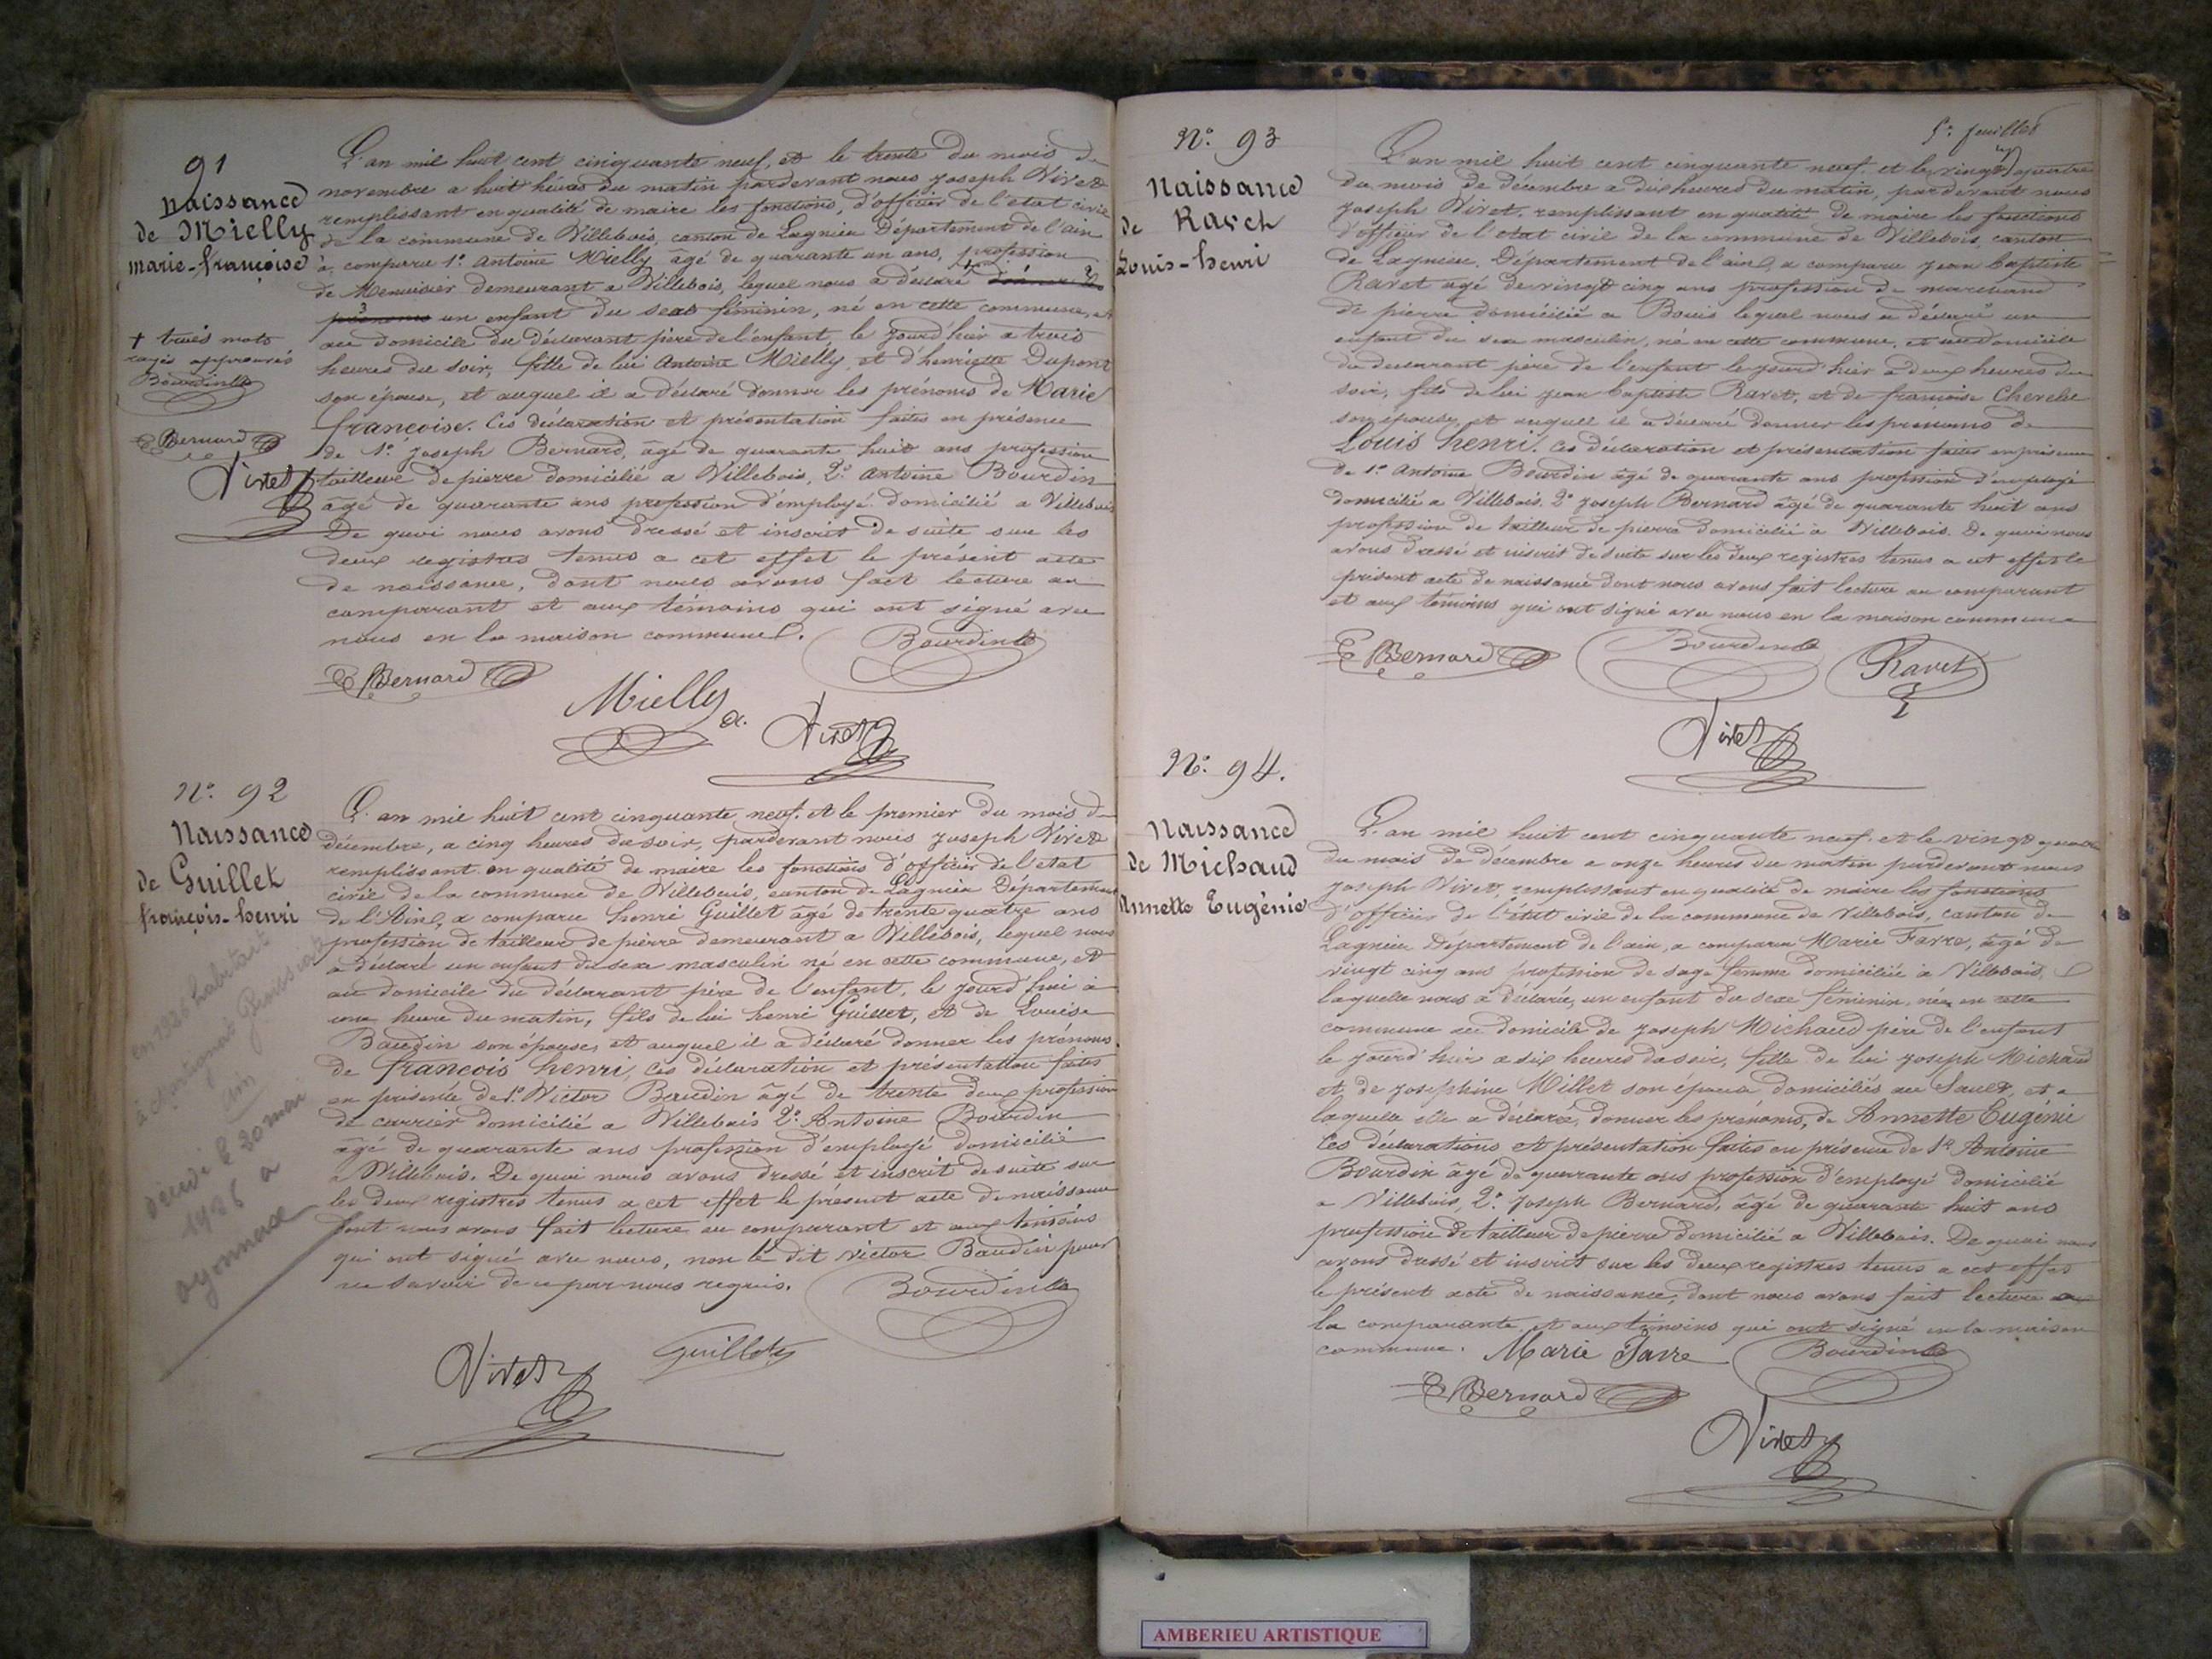 91
Naissance
de Mielly
Marie-françoise
L'an mil huit cent cinquante neuf, et le trente du mois de
novembre a huit heures du matin pardevant nous Joseph Vivet
remplissant en qualité de maire les fonctions, d'officier de l'état civil
de la commune de Villebois, canton de Lagnieu Département de l'ain
à comparu 1º Antoine Mielly, âgé de quarante un ans, profession
de Menuisier demeurant a Villebois, lequel nous a déclaré
un enfant du sexe féminin, né en cette commune, et
au domicile du déclarant père de l'enfant, le jourd'hier a trois
heures du soir, fille de lui Antoine Mielly, et d'henriette Dupont
son épouse, et auquel il a déclaré donner les prénoms de Marie
françoise. Ces déclaration et présentation faites en présence
de 1º Joseph Bernard, âgé de quarante huit ans profession
tailleur de pierre domicilié a Villebois, 2º Antoine Bourdin
âgé de quarante ans profession d'employé domicilié a Villebois
De quoi nous avons dressé et inscrit de suite sur les
deux registres tenus a cet effet le présent acte
de naissance, dont nous avons fait lecture au
comparant et aux témoins qui ont signé avec
nous en la maison commune.
+ trois mots
rayés approuvés
Bourdin
Bernard
Vivet
Bourdin
Bernard
Mielly
Vivet
Nº 92
Naissance
de Guillet
françois-henri
L'an mil huit cent cinquante neuf. et le premier du mois de
décembre, a cinq heures du soir, pardevant nous Joseph Vivet
remplissant en qualité de maire les fonctions d'officier de l'état
civil de la commune de Villebois, canton de Lagnieu Département
de l'Ain, a comparu henri Guillet âgé de trente quatre ans
profession de tailleur de pierre demeurant a Villebois, lequel nous
a déclaré un enfant du sexe masculin né en cette commune, et
au domicile du déclarant père de l'enfant, le jourd'hui à
une heure du matin, fils de lui henri Guillet, et de Louise
Baudin son épouse, et auquel il a déclaré donner les prénoms
de françois henri, Ces déclaration et présentation faites
en présence de 1º Victor Baudin âgé de trente deux profession
de carrier domicilié a Villebois 2º Antoine Bourdin
âgé de quarante ans profession d'employé domicilié
a Villebois. De quoi nous avons dressé et inscrit de suite sur
les deux registres tenus a cet effet le présent acte de naissance
dont nous avons fait lecture au comparant et aux témoins
qui ont signé avec nous, non le dit Victor Baudin pour
ne savoir de ce par nous requis.
en 1926 habitant
à
Ain
décédé le 30 mai
1926 a
oyonnax
Bourdin
Vivet
Guillet
5e feuillet
Nº 93
Naissance
de Ravet
Louis-henri
L'an mil huit cent cinquante neuf. et le vingt quatre
du mois de décembre a dix heures du matin, pardevant nous
Joseph Vivet. remplissant en qualité de maire les fonctions
d'officier de l'état civil de la commune de Villebois, canton
de Lagnieu, Département de l'ain, a comparu jean baptiste
Ravet âgé de vingt cinq ans profession de marchand
de pierre domicilié a Bouis lequel nous a déclaré un
enfant du sexe masculin, né en cette commune, et au domicile
du declarant père de l'enfant le jourd'hier a deux heures du
soir, fils de lui jean baptiste Ravet, et de françoise
son épouse, et auquel il a déclaré donner les prénoms de
Louis henri. Ces déclaration et présentation faites en présence
de 1º Antoine Bourdin âgé de quarante ans profession d'employé
domicilié a Villebois. 2º Joseph Bernard âgé de quarante huit ans
profession de tailleur de pierre domicilié a Villebois. De quoi nous
avons dressé et inscrit de suite sur les deux registres tenus a cet effet le
présent acte de naissance dont nous avons fait lecture au comparant
et aux témoins qui ont signé avec nous en la maison commune
Bernard
Bourdin
Ravet
Vivet
Nº 94.
Naissance
de Michaud
Annette Eugénie
L'an mil huit cent cinquante neuf. et le vingt quatre
du mois de décembre a onze heures du matin pardevant nous
Joseph Vivet, remplissant en qualité de maire les fonctions
d'officier de l'état civil de la commune de Villebois, canton de
Lagnieu Département de l'ain, a comparu Marie Favre, âgé de
vingt cinq ans profession de sage femme domiciliée à Villebois,
laquelle nous a déclarée, un enfant du sexe féminin, née en cette
commune au domicile de Joseph Michaud père de l'enfant
le jourd'hier a six heures du soir, fille de lui Joseph Michaud
et de Josephine Millet son épouse domiciliés au Sault, et a
laquelle elle a déclarée, donner les prénoms, de Annette Eugénie
Ces déclarations et présentation faites en présence de 1º Antoine
Bourdin âgé de quarante ans profession d'employé domicilié
a Villebois, 2º Joseph Bernard, âgé de quarante huit ans
profession de tailleur de pierre domicilié a Villebois. De quoi nous
avons dressé et inscrit sur les deux registres tenus a cet effet
le présent acte de naissance, dont nous avons fait lecture
la comparante et aux témoins qui ont signé en la maison
commune.
Marie Favre
Bourdin
Bernard
Vivet
AMBERIEU ARTISTIQUE